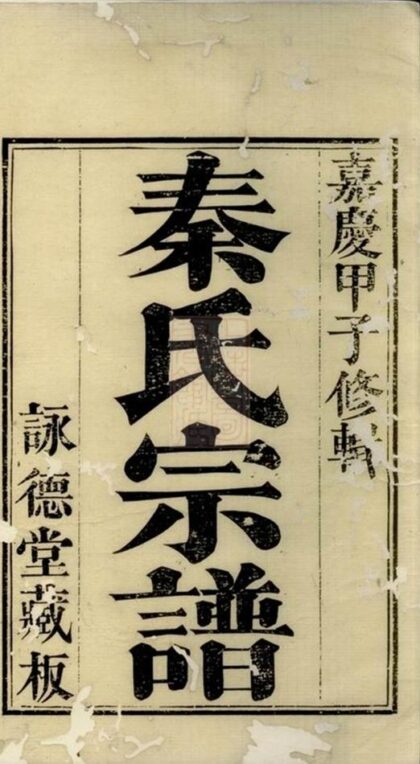 嘉慶甲子修輯
秦氏宗譜
詠德堂藏板